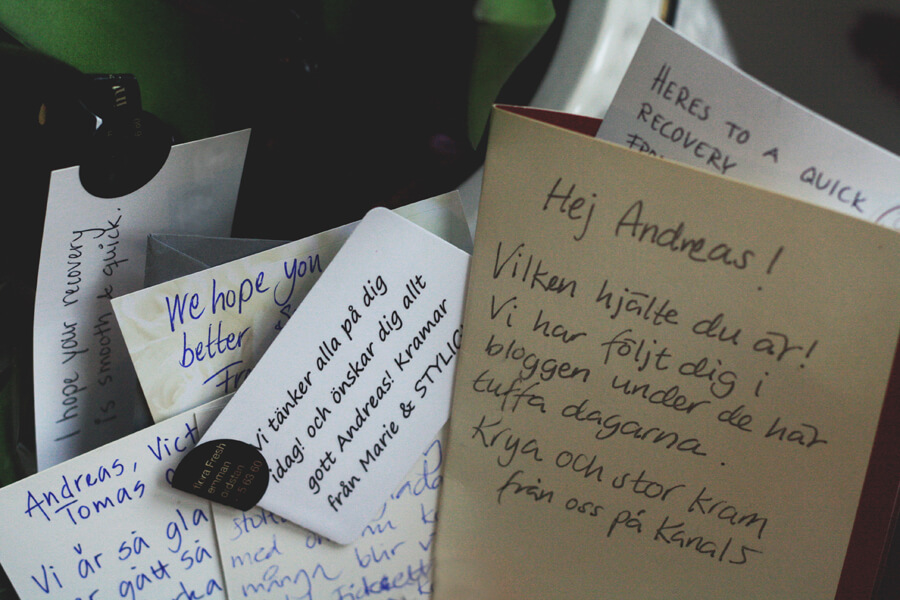 I hope your recovery
is smooth & quick.
We hope you
better
Andreas, Vict
Tomas
Vi är så gla
gått så
med
många blir
Vi tänker alla på dig
idag! och önskar dig allt
gott Andreas! Kramar
från Marie & STYLIC
Fresh
5 65 60
HERES TO A QUICK
RECOVERY
Hej Andreas!
Vilken hjälte du är!
Vi har följt dig i
bloggen under de här
tuffa dagarna.
Krya och stor kram
från oss på Kanal5